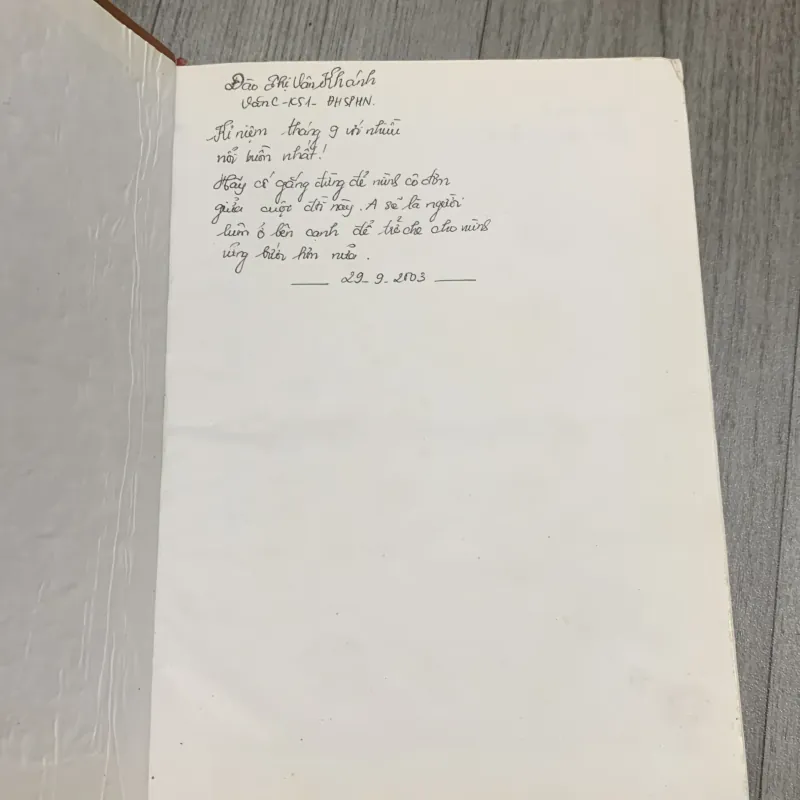 Đào Thị Vân Khánh
Văn C - K51 - ĐHSPHN.
Kỉ niệm tháng 9 với nhiều
nỗi buồn nhất!
Hãy cố gắng đừng để mình cô đơn
giữa cuộc đời này. A sẽ là người
luôn ở bên cạnh để trẻ che cho mình
vững bước hơn nữa.
29-9-2003